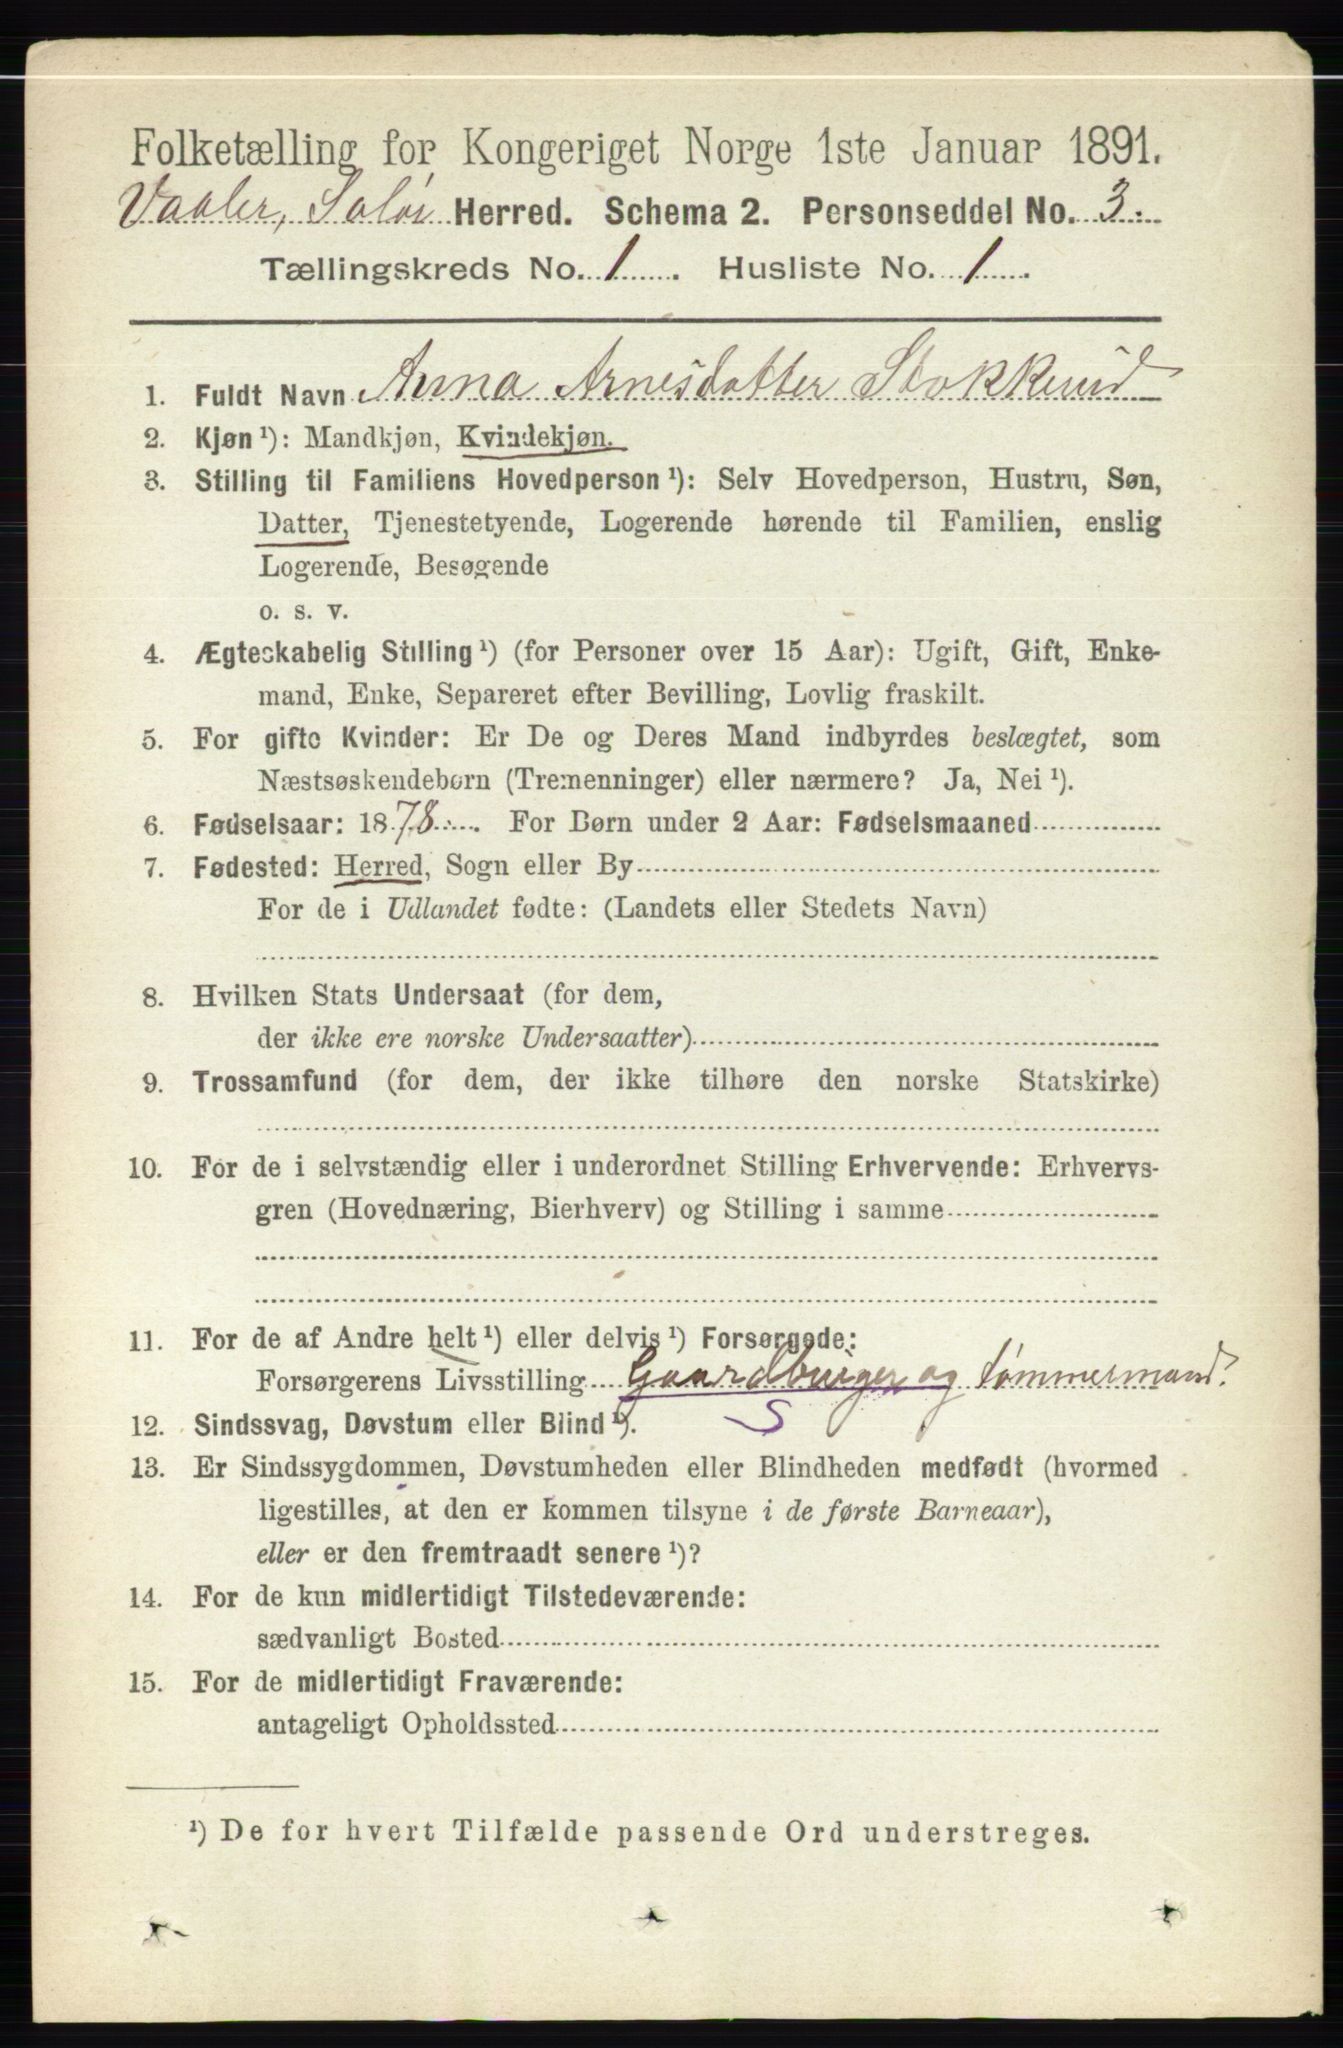 Folketælling for Kongeriget Norge 1ste Januar 1891.
Vaaler, Soløi Herred. Schema 2. Personseddel No. 3.
Tællingskreds No. 1. Husliste No. 1.
1. Fuldt Navn Anna Arnesdatter Stokkerud
2. Kjøn ¹): Mandkjøn, Kvindekjøn.
3. Stilling til Familiens Hovedperson ¹): Selv Hovedperson, Hustru, Søn,
Datter, Tjenestetyende, Logerende hørende til Familien, enslig
Logerende, Besøgende
o. s. v.
4. Ægteskabelig Stilling ¹) (for Personer over 15 Aar): Ugift, Gift, Enke-
mand, Enke, Separeret efter Bevilling, Lovlig fraskilt.
5. For gifte Kvinder: Er De og Deres Mand indbyrdes beslægtet, som
Næstsøskendebørn (Tremenninger) eller nærmere? Ja, Nei ¹).
6. Fødselsaar: 1878. For Børn under 2 Aar: Fødselsmaaned
7. Fødested: Herred, Sogn eller By
For de i Udlandet fødte: (Landets eller Stedets Navn)
8. Hvilken Stats Undersaat (for dem,
der ikke ere norske Undersaatter)
9. Trossamfund (for dem, der ikke tilhøre den norske Statskirke)
10. For de i selvstændig eller i underordnet Stilling Erhvervende: Erhvervs-
gren (Hovednæring, Bierhverv) og Stilling i samme
11. For de af Andre helt ¹) eller delvis ¹) Forsørgede:
Forsørgerens Livsstilling Gaardbruger og tømmermand.
12. Sindssvag, Døvstum eller Blind ¹). S
13. Er Sindssygdommen, Døvstumheden eller Blindheden medfødt (hvormed
ligestilles, at den er kommen tilsyne i de første Barneaar),
eller er den fremtraadt senere ¹)?
14. For de kun midlertidigt Tilstedeværende:
sædvanligt Bosted
15. For de midlertidigt Fraværende:
antageligt Opholdssted
¹) De for hvert Tilfælde passende Ord understreges.